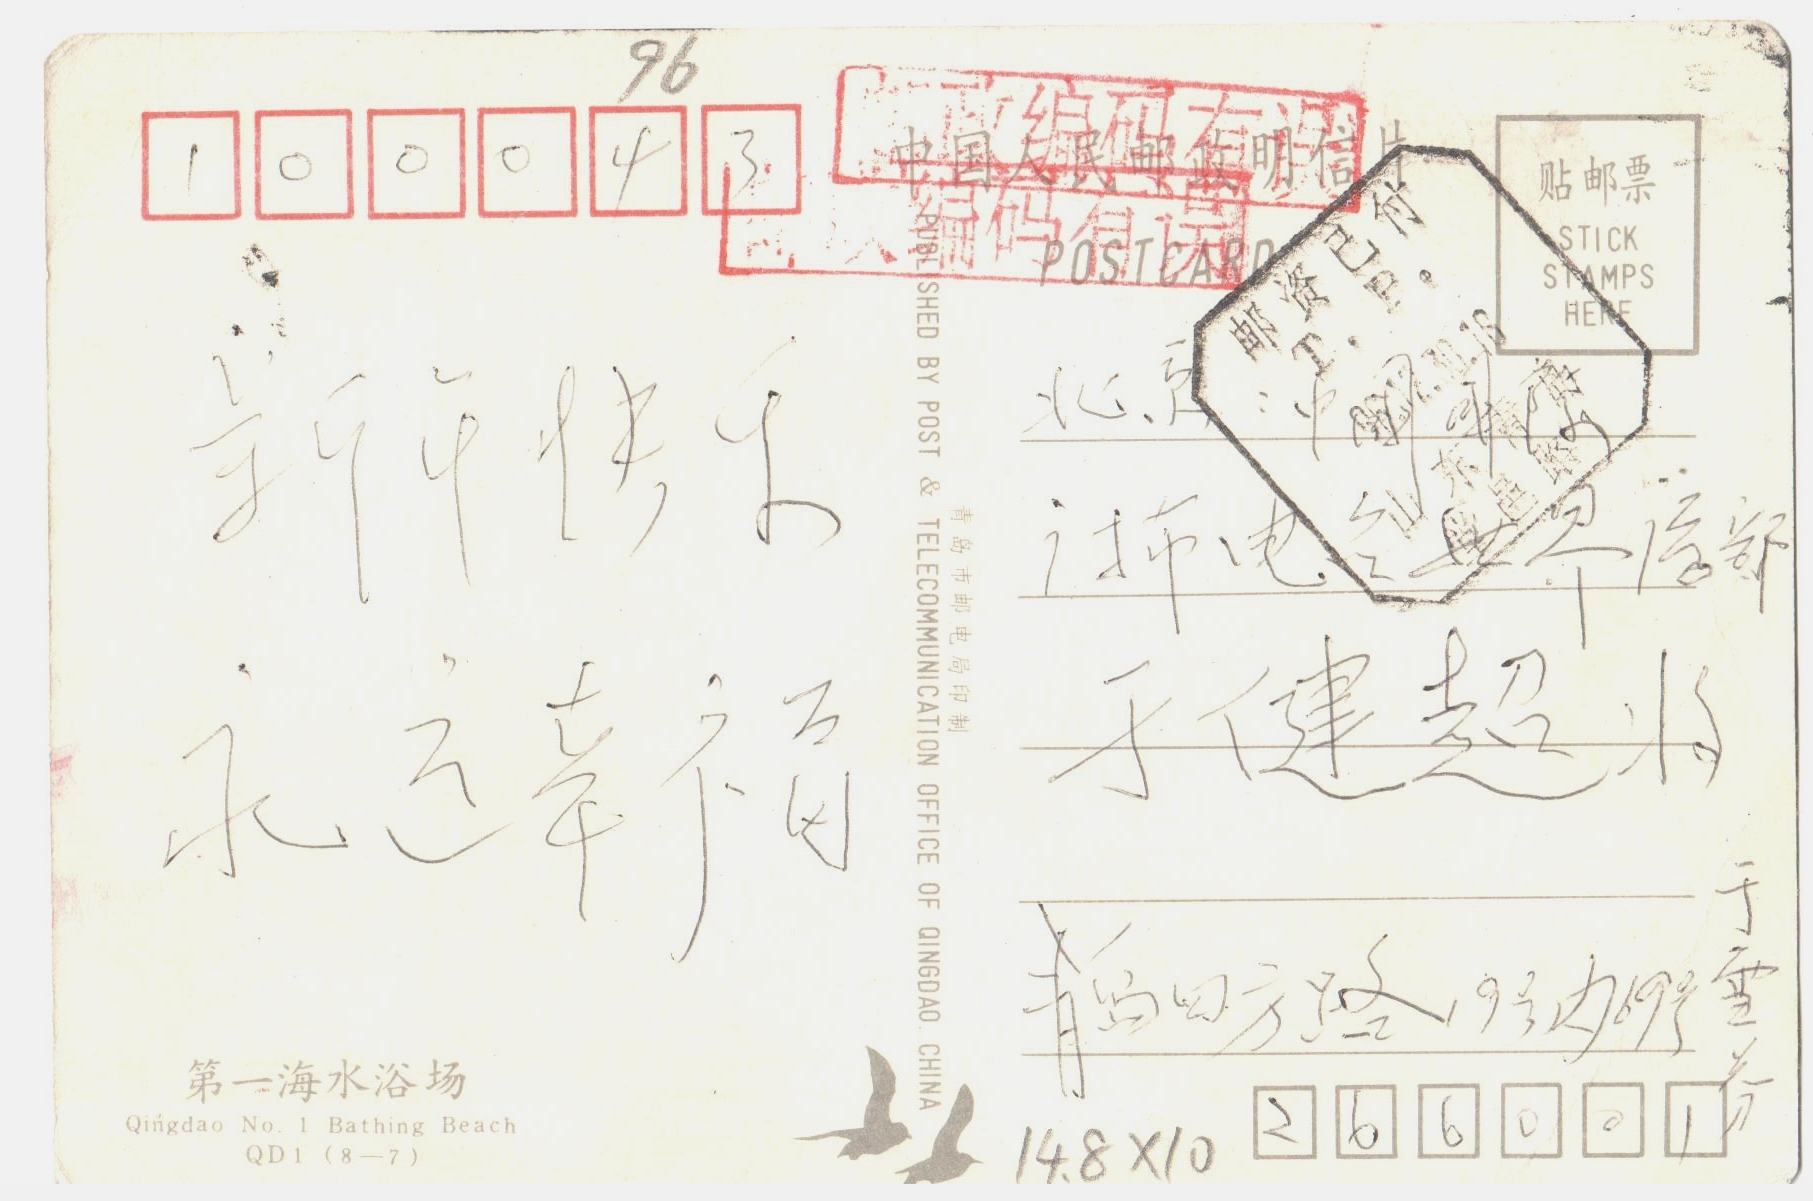 96
100043
邮政编码有误
邮政编码有误
中国人民邮政明信片
POSTCARD
贴邮票
STICK
STAMPS
HERE
邮资已付
T. P.
山东青岛
新年快乐
永远幸福
北京 中国
电台世界语部
于健超收
青岛四方路19号内69号
于雪芬
266001
PUBLISHED BY POST & TELECOMMUNICATION OFFICE OF QINGDAO. CHINA
青岛市邮电局印制
第一海水浴场
Qingdao No. 1 Bathing Beach
QD1 (8—7)
14.8X10